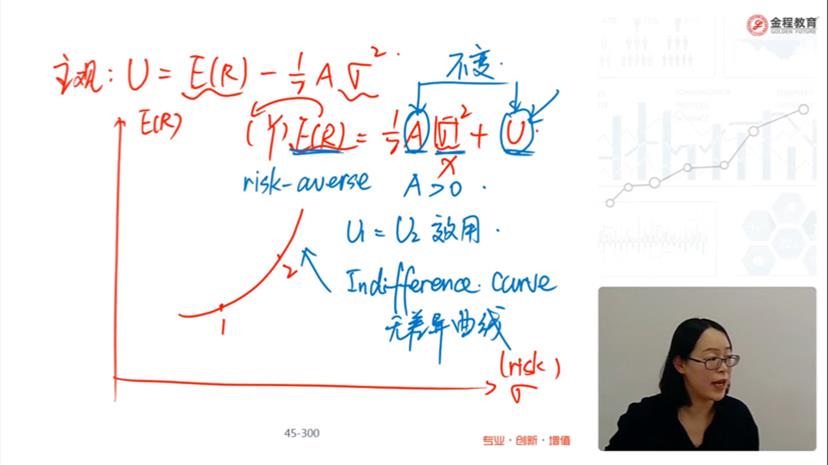 金程教育
GOLDEN FUTURE
主观: U = E(R) - ½ A σ².
不变
E(R)
(Y) E(R) = ½ A σ² + U.
X
risk-averse A > 0.
U₁ = U₂ 效用.
2
Indifference. Curve
1
无差异曲线
(risk)
σ
45-300
专业·创新·增值